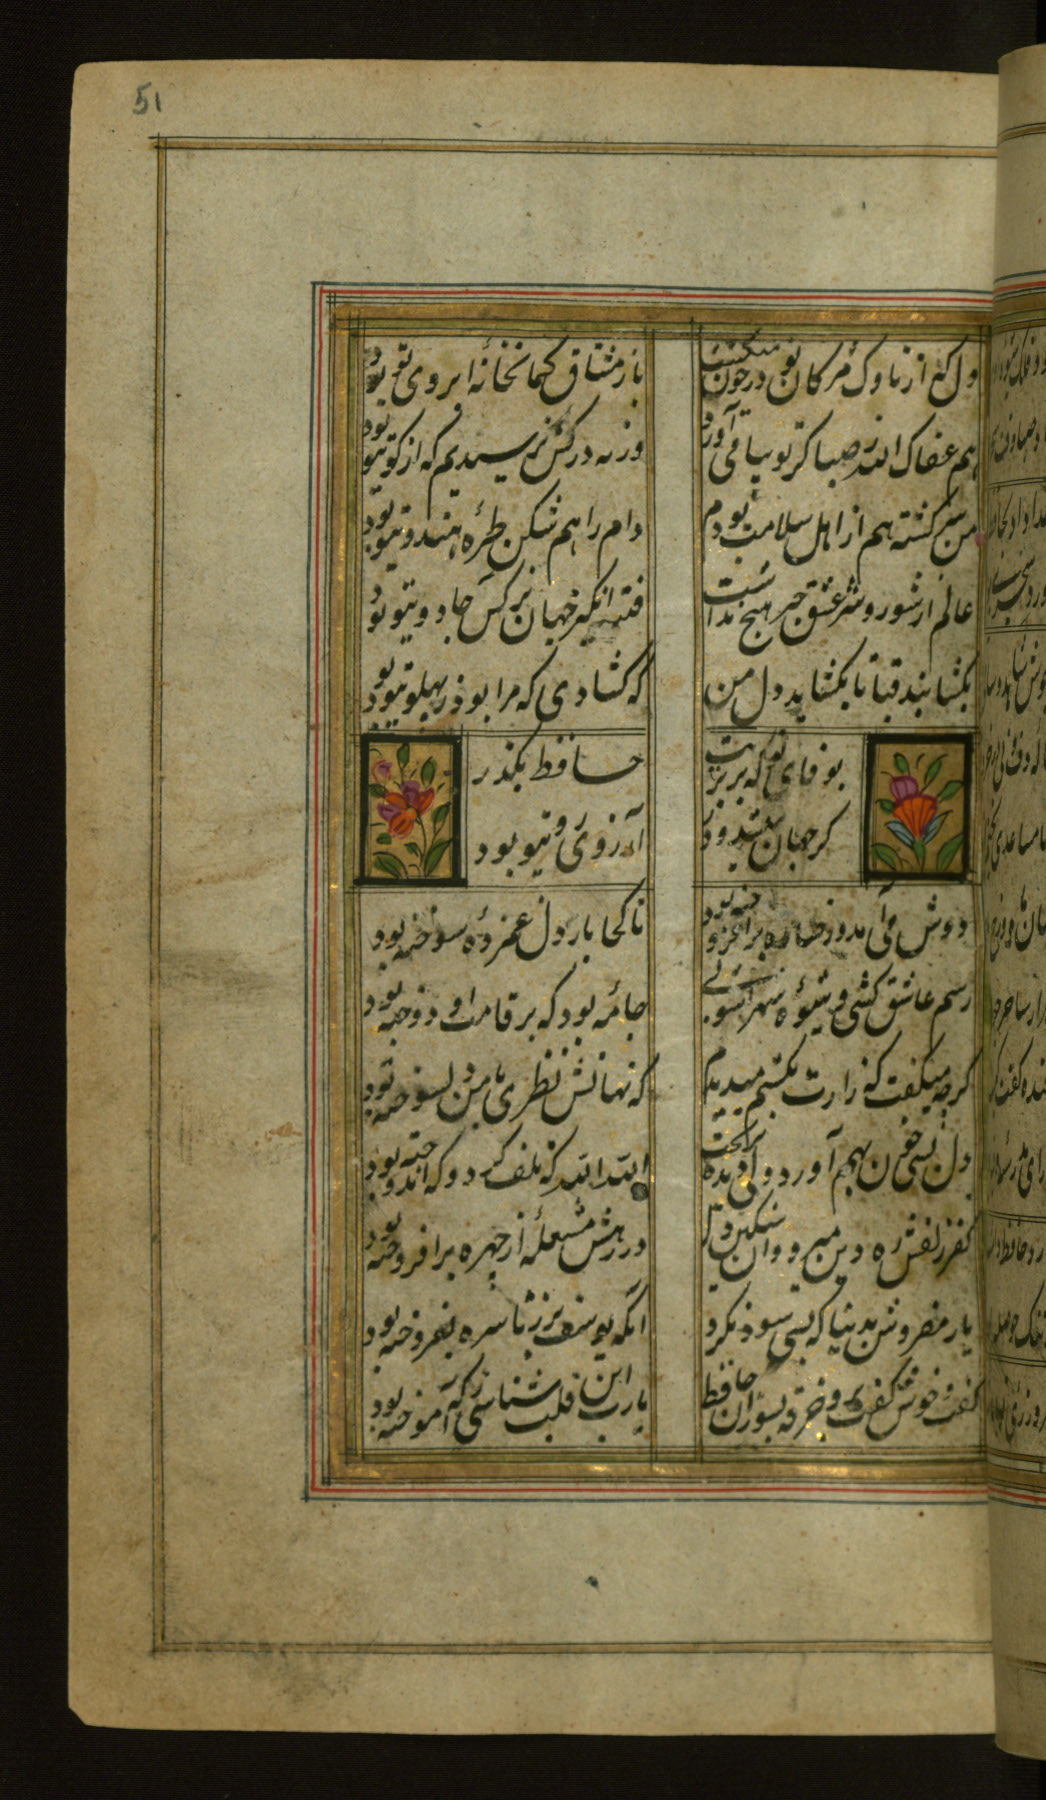 51
دل که از ناوک مژگان تو در خون میگشت
باز مشتاق کمانخانه ابروی تو بود
هم عفاک الله صبا کز تو پیامی آورد
ورنه در کس نرسیدیم که از کوی تو بود
من سرگشته هم از اهل سلامت بودم
دام راهم شکن طره هندوی تو بود
عالم از شور و شر عشق خبر هیچ نداشت
فتنه انگیز جهان نرگس جادوی تو بود
بگشا بند قبا تا بگشاید دل من
که گشادی که مرا بود ز پهلوی تو بود
بوفای تو که بر تربت
حافظ بگذر
کز جهان میشد و در
آرزوی روی تو بود
دوش می آمد و رخساره برافروخته بود
تا کجا باز دل غمزده سوخته بود
رسم عاشق کشی و شیوه شهرآشوبی
جامه بود که بر قامت او دوخته بود
گرچه میگفت که زارت بکشم میدیدم
که نهانش نظری با من دلسوخته بود
دل بسی خون بهم آورد ولی دیده بریخت
الله الله که تلف کرد و که اندوخته بود
کفر زلفش ره دین میزد و آن سنگین دل
در رهش مشعله از چهره برافروخته بود
یار مفروش بدنیا که بسی سود نکرد
آنکه یوسف بزر ناسره بفروخته بود
گفت و خوش گفت برو خرقه بسوزان حافظ
یارب این قلب شناسی ز که آموخته بود